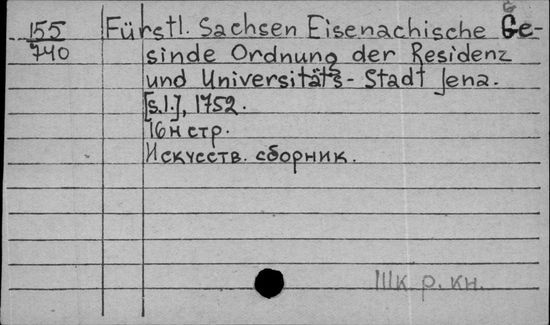 155 Fürstl. Sachsen Eisenachische Ge-
740 sinde Ordnung der Residenz
und Universitäts- Stadt Jena.
[s.l.], 1752.
16 н стр.
Искусств. сборник.
Шк р. кн.